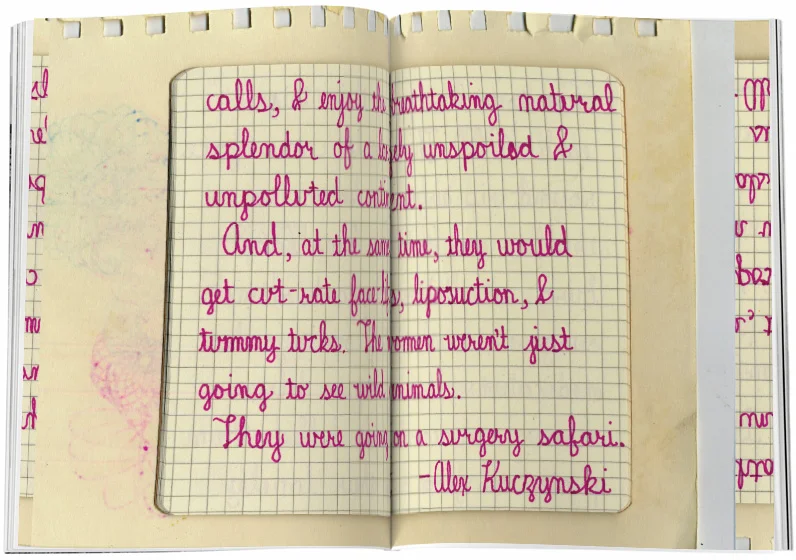 calls, & enjoy the breathtaking natural
splendor of a largely unspoiled &
unpolluted continent.
And, at the same time, they would
get cut-rate facelifts, liposuction, &
tummy tucks. The women weren't just
going to see wild animals.
They were going on a surgery safari.
-Alex Kuczynski